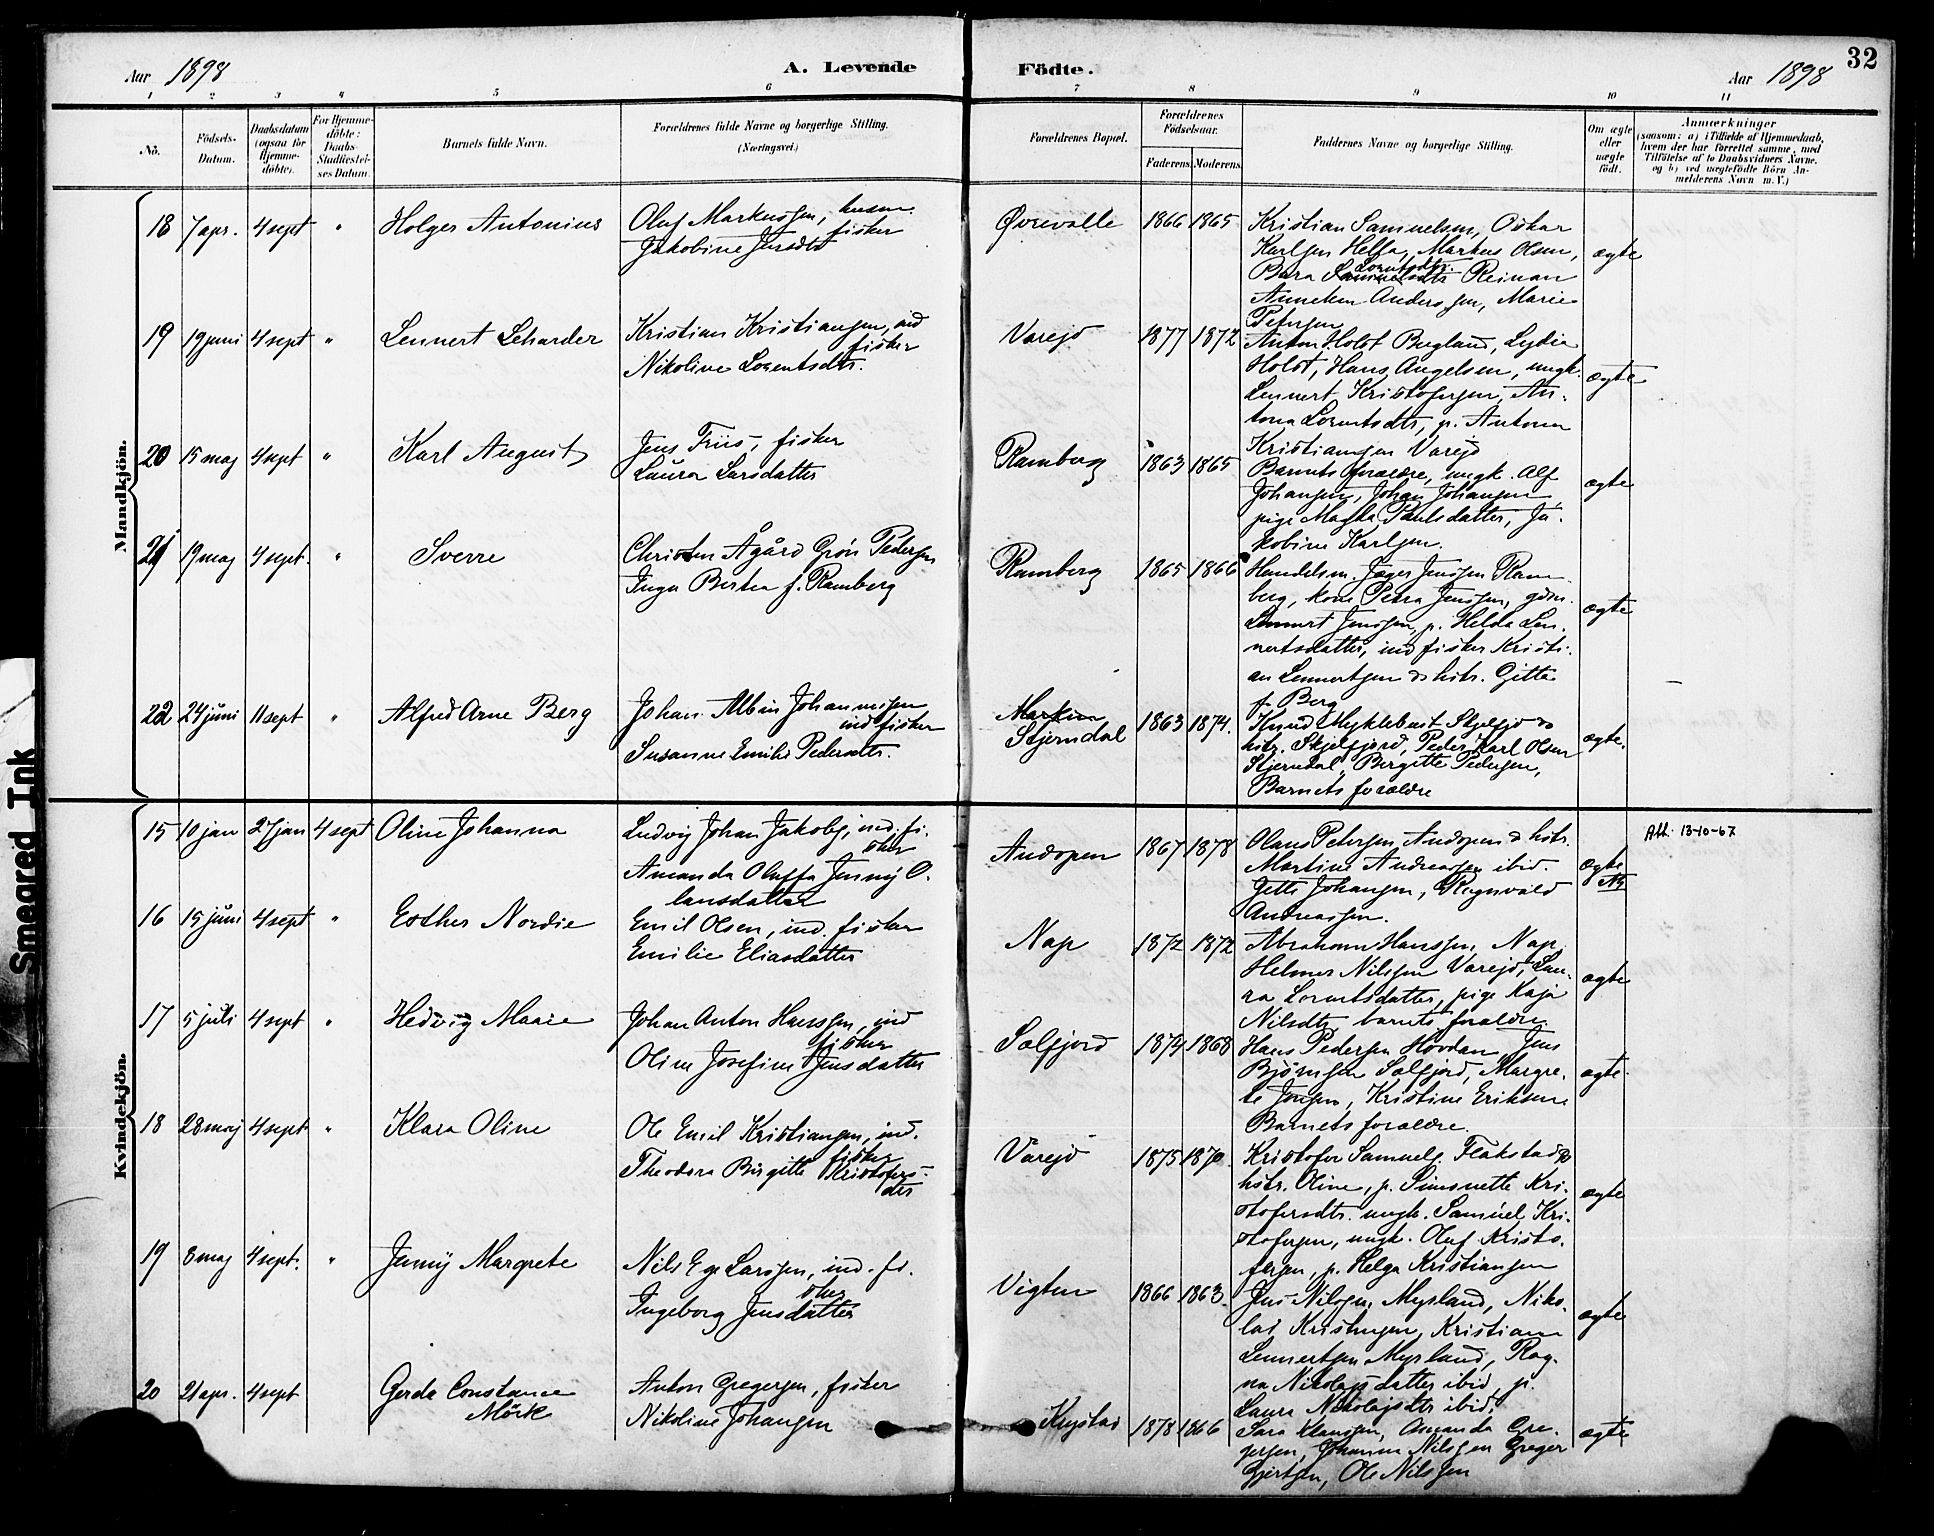 Aar 1898
A. Levende
Födte.
Aar 1898
32
1 2 3 4 5 6 7 8 9 10 11
No.
Födsels-
Datum.
Daabsdatum
(ogsaa for
Hjemme-
döbte).
For Hjemme-
döbte:
Daabs-
Stadfæstel-
ses Datum.
Barnets fulde Navn.
Forældrenes fulde Navne og borgerlige Stilling.
(Næringsvei.)
Forældrenes Bopæl.
Forældrenes
Födselsaar.
Faderens. Moderens.
Faddernes Navne og borgerlige Stilling.
Om ægte
eller
uægte
födt.
Anmærkninger
(saasom: a) i Tilfælde af Hjemmedaab,
hvem der har forrettet samme, med
Tilföielse af to Daabsvidners Navne.
og b) ved uægtefödte Börn An-
melderens Navn m. V.)
Mandkjön.
18 7 apr. 4 sept " Holger Antonius
Oluf Markussen, husm.
fisker
Jakobine Jensdtr
Øvrevalle 1866 1865
Kristian Samuelsen, Oskar
Karlsen Helfa, Markus Olsen,
Lorntsdtr.
Bera Samuelsdtr Reinan
Anneken Anderssen, Marie
Petersen
ægte
19 19 juni 4 sept " Lennert Leharder
Kristian Kristiansen, ind
fisker
Nikoline Lorentsdtr.
Varejd 1877 1872
Anton Holst Bugland, Lydia
Holst, Hans Angelsen, ungk.
Lennert Kristofersen, An-
tona Lorntsdtr, p. Antona
Kristiansen Varejd
ægte
20 15 maj 4 sept " Karl August
Jens Friis, fisker
Laura Larsdatter
Ramberg 1863 1865
Barnets forældre, ungk. Alf
Johansen, Johan Johansen
pige Magda Paulsdatter, Ja-
kobine Karlsen.
ægte
21 19 maj 4 sept. " Sverre
Christen Ågård Grön Pedersen
Inga Bertea f. Ramberg
Ramberg 1865 1866
Handelsm. Jæger Jenssen Ram
berg, kone Petra Jenssen, gdm.
Lennert Jenssen, p. Helda Len-
nertsdatter, ind fisker Kristi-
an Lennertsen & hstr. Gitta
f. Berg
ægte
22 24 juni 11 sept " Alfred Arne Berg
Johan Albin Johannesen
ind fisker
Susanne Emilie Pedersdtr.
Stjerndal 1863 1874.
Knud Myklebust Skjelfjo &
hstr. Skjelfjord, Peder Karl Olsen
Stjerndal, Bergitte Pedersen,
Barnets forældre
ægte.
Kvindekjön.
15 10 jan 27 jan 4 sept Oline Johanna
Ludvig Johan Jakobs, ind. fi-
sker
Amanda Oluffa Jenny O-
lausdatter
Andopen 1867 1878
Olaus Petersen Andopen & hstr.
Martine Andreassen ibid.
Jette Johansen, Ragnvald
Andreassen.
ægte
Att. 13-10-67
16 15 juni 4 sept " Esther Nordie
Emil Olsen, ind. fisker
Emilie Eliasdatter
Nap 1872 1872
Abraham Hanssen, Nap,
Helmer Nilssen Varejd, Lau-
ra Lorentsdatter, pige Kaja
Nilsdtr, barnets forældre.
ægte
17 5 juli 4 sept " Hedvig Maaie
Johan Anton Hanssen, ind
fisker
Oline Josefine Jensdatter
Solfjord 1874 1868
Hans Pedersen Hovdan Jens
Björnsen Solfjord, Margre-
te Jensen, Kristine Eriksen
Barnets forældre.
ægte.
18 28 maj 4 sept " Klara Oline
Ole Emil Kristiansen, ind.
fisker
Theodora Birgitte Kristofers-
dtr
Varejd 1875 1870.
Kristofer Samuels Flakstad &
hstr. Oline, p. Simonette Kri-
stofersdtr. ungk. Samuel Kri-
stofersen, ungk. Oluf Kristo-
fersen, p. Helga Kristiansen
ægte
19 8 maj 4 sept. " Jenny Margrete
Nils Ege Larssen, ind. fi-
sker
Ingeborg Jensdatter
Vigten 1866 1863.
Jens Nilssen Myrland, Niko-
lai Kristensen, Kristian
Lennertsen Myrland, Rag-
na Nikolajsdatter ibid, p.
Laura Nikolajsdtr ibid.
ægte
20 21 apr. 4 sept Gerda Constance
Mörk
Anton Gregersen, fisker
Nikoline Johansen
Krystad 1878 1866
Sara Klaussen, Amanda Gre-
gersen, Johanna Nilssen Greger
Gjertsen, Ole Nilssen
ægte
Smeared Ink